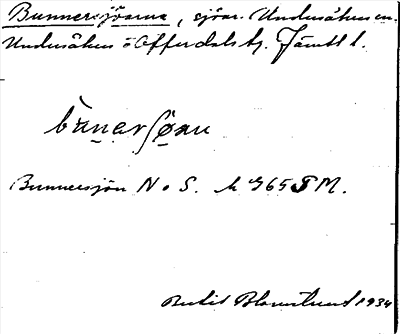 Bunnersjöarna, sjöar. Undersåkers sn.
Undersåkers o Offerdals tg. Jämtl l.
bùnarʃöan
Bunnersjön N o S. h 965 M.
Bertil Blomstrand 1934